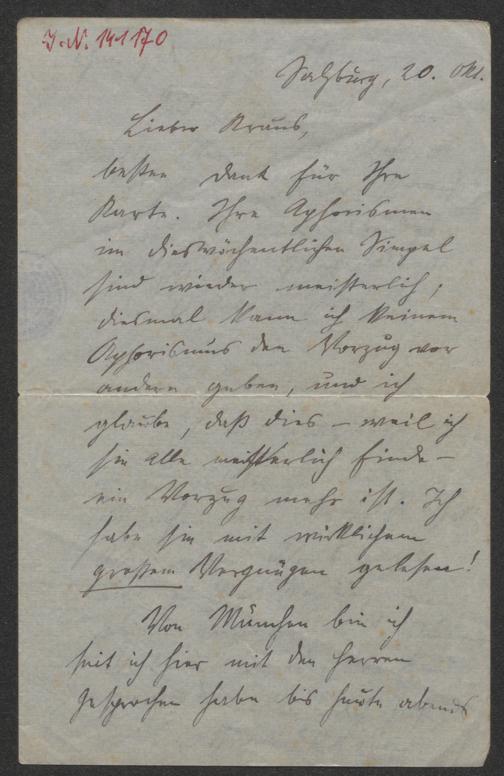 J.N. 141170
Salzburg, 20. Okt.
Lieber Kraus,
besten Dank für Ihre
Karte. Ihre Aphorismen
im dieswöchentlichen Simpel
sind wieder meisterlich;
diesmal kann ich keinem
Aphorismus den Vorzug vor
andern geben, und ich
glaube, daß dies – weil ich
sie alle meisterlich finde –
ein Vorzug mehr ist. Ich
habe sie mit wirklichem
großem Vergnügen gelesen!
Von München bin ich
seit ich hier mit den Herren
gesprochen habe bis heute abends